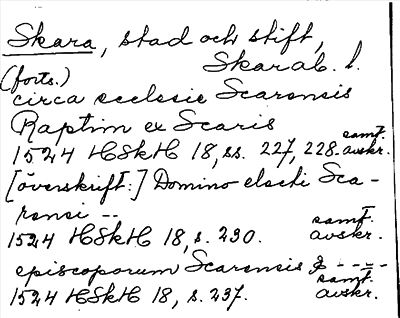 Skara, stad och stift,
Skarab. l.
(forts.)
circa ecclesie Scarensis
Raptim ex Scaris
1524 HSkH 18, ss. 227, 228. samt. avskr.
[överskrift:] Domino electi Sca-
rensi --
1524 HSkH 18, s. 230. samt. avskr.
episcoporum Scarensis & ----
1524 HSkH 18, s. 237. samt. avskr.